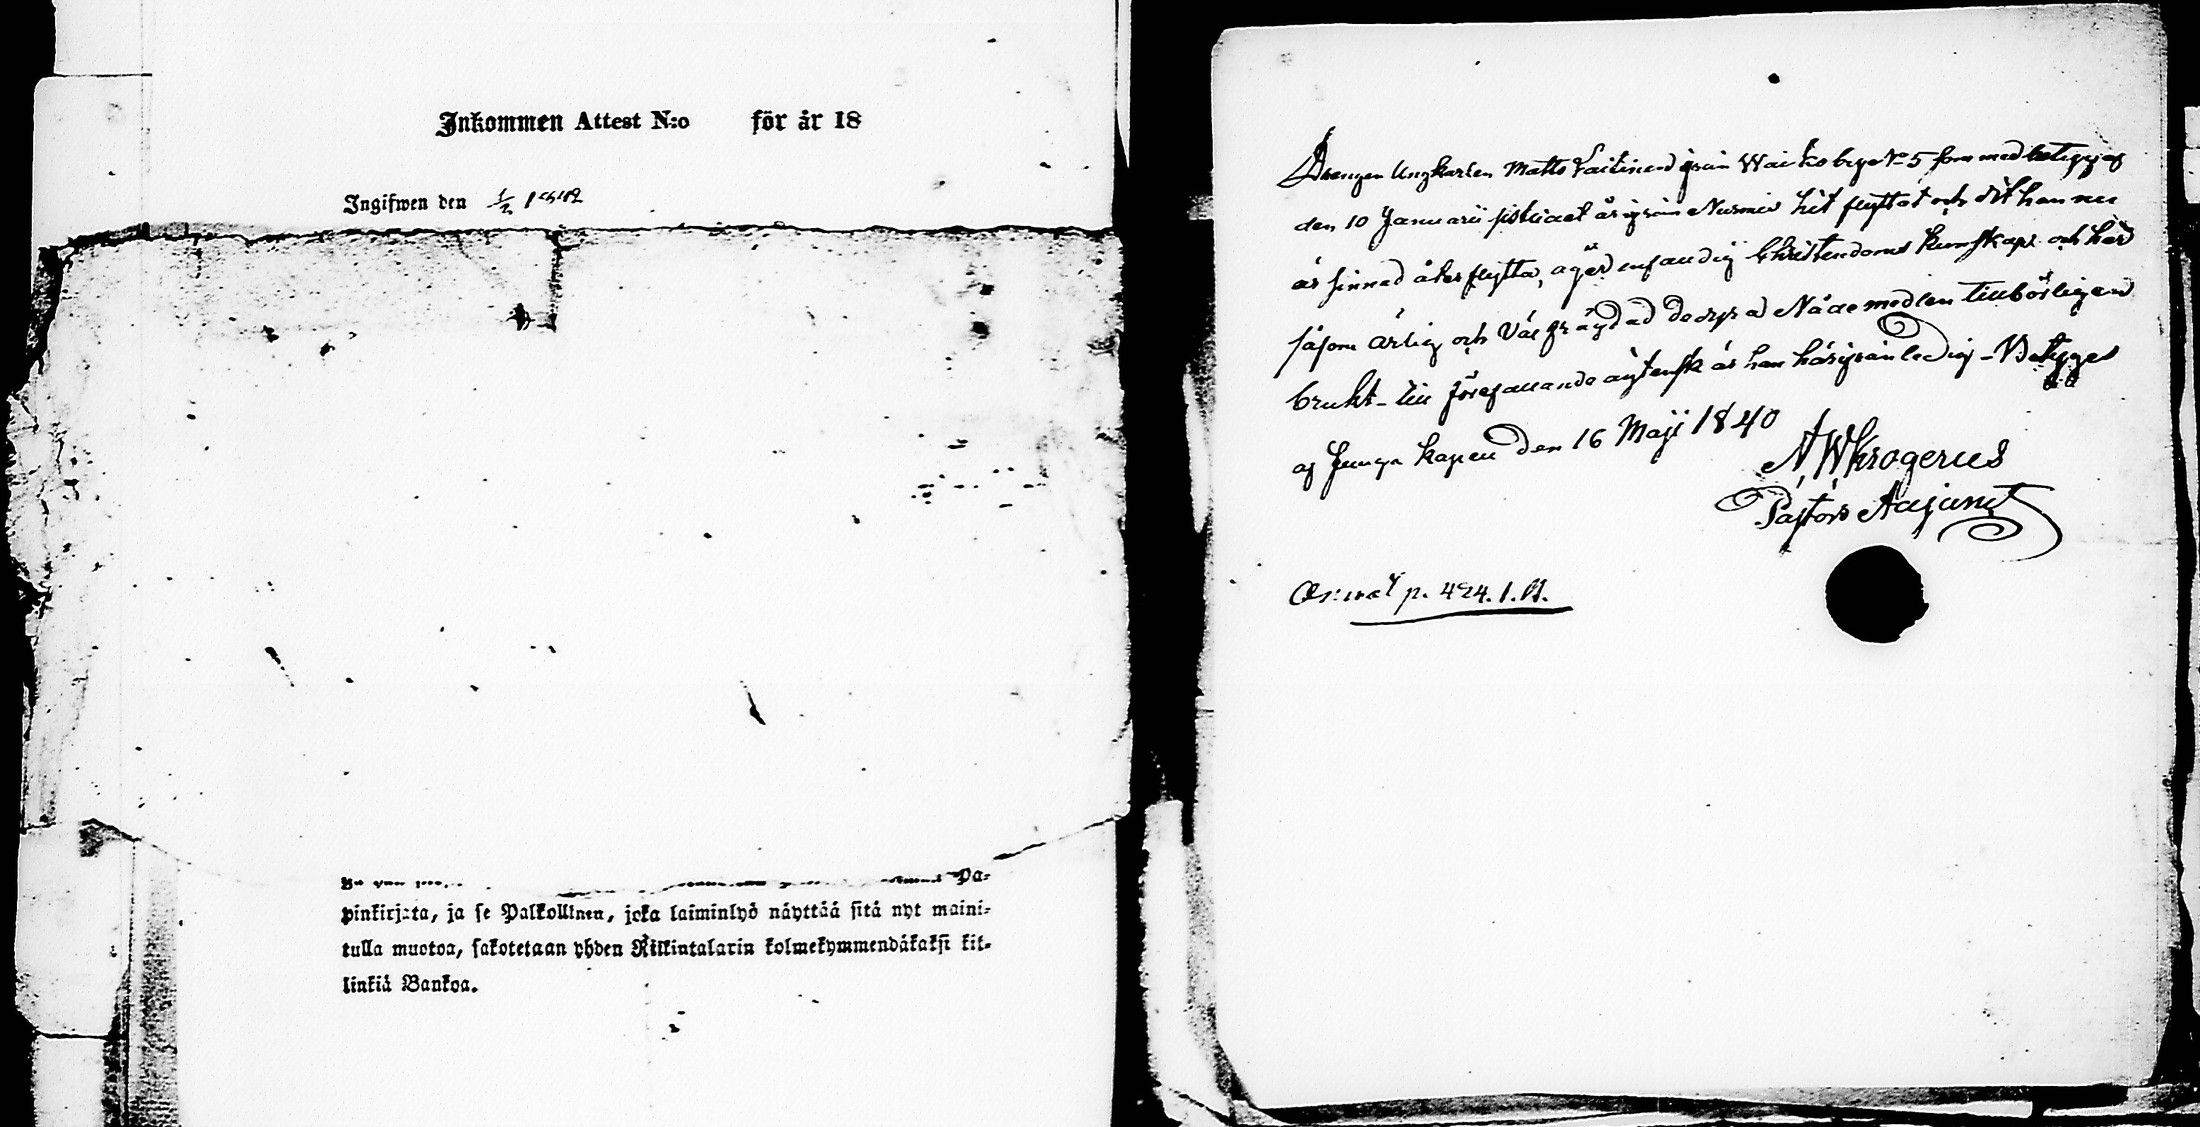 Inkommen Attest N:o för år 18
Ingifwen den 1/2
Pa-
pinkirjata, ja se Palkollinen, joka laiminlyö näyttää sitä nyt maini-
tulla muotoa, sakotetaan yhden Rillintalarin kolmekymmendäkaksi kil-
linkiä Bankoa.
Drengen Ungkarlen Matts Laitinen ifrån Waiko by N:o 5 som med betyg af
den 10 Januarii sistludet år ifrån Nurmis hit flyttat och dit han nu
är sinnad åter flytta, äger enfaudig Christendoms kunskap och har
såsom ärlig och väl frägdad dessa Nådemedlen tillbörligen
brukt - till förefallande ägtensk är han härifrån ledig - Betyges
af Junga kapell den 16 Maji 1840
A W Krogerus
Pastors Adjunct
p. 424.